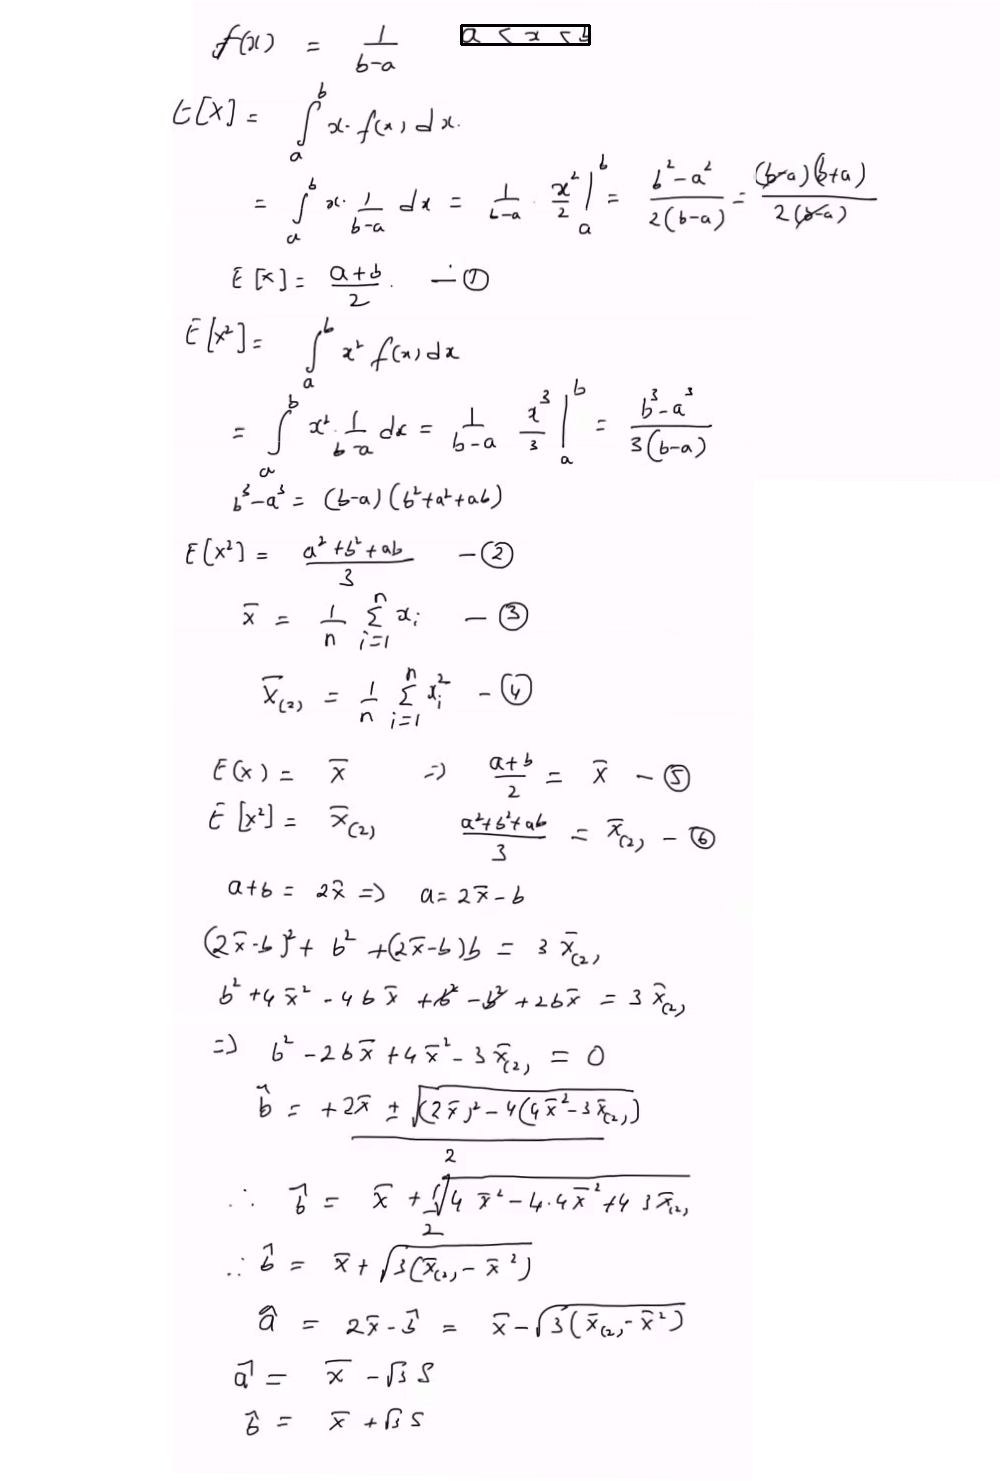 f(x) = 1/(b-a)   a < x < b
E[X] = ∫_a^b x. f(x) dx.
= ∫_a^b x. 1/(b-a) dx = 1/(b-a) . x²/2 |_a^b = (b²-a²)/(2(b-a)) = ((b-a)(b+a))/(2(b-a))
E[x] = (a+b)/2 . — ①
E[x²] = ∫_a^b x² f(x) dx
= ∫_a^b x². 1/(b-a) dx = 1/(b-a) x³/3 |_a^b = (b³-a³)/(3(b-a))
b³-a³ = (b-a)(b²+a²+ab)
E[x²] = (a²+b²+ab)/3 — ②
x̄ = 1/n Σ_{i=1}^n x_i — ③
x̄_(2) = 1/n Σ_{i=1}^n x_i² — ④
E(x) = x̄ => (a+b)/2 = x̄ — ⑤
E[x²] = x̄_(2)   (a²+b²+ab)/3 = x̄_(2) — ⑥
a+b = 2x̄ => a = 2x̄-b
(2x̄-b)² + b² + (2x̄-b)b = 3 x̄_(2)
b² + 4x̄² - 4bx̄ + b² - b² + 2bx̄ = 3 x̄_(2)
=> b² - 2bx̄ + 4x̄² - 3x̄_(2) = 0
b̂ = (+2x̄ ± √((2x̄)² - 4(4x̄² - 3x̄_(2))))/2
∴ b̂ = x̄ + √(4x̄² - 4.4x̄² + 4 3x̄_(2))/2
∴ b̂ = x̄ + √(3(x̄_(2) - x̄²))
â = 2x̄ - b̂ = x̄ - √(3(x̄_(2) - x̄²))
â = x̄ - √3 S
b̂ = x̄ + √3 S